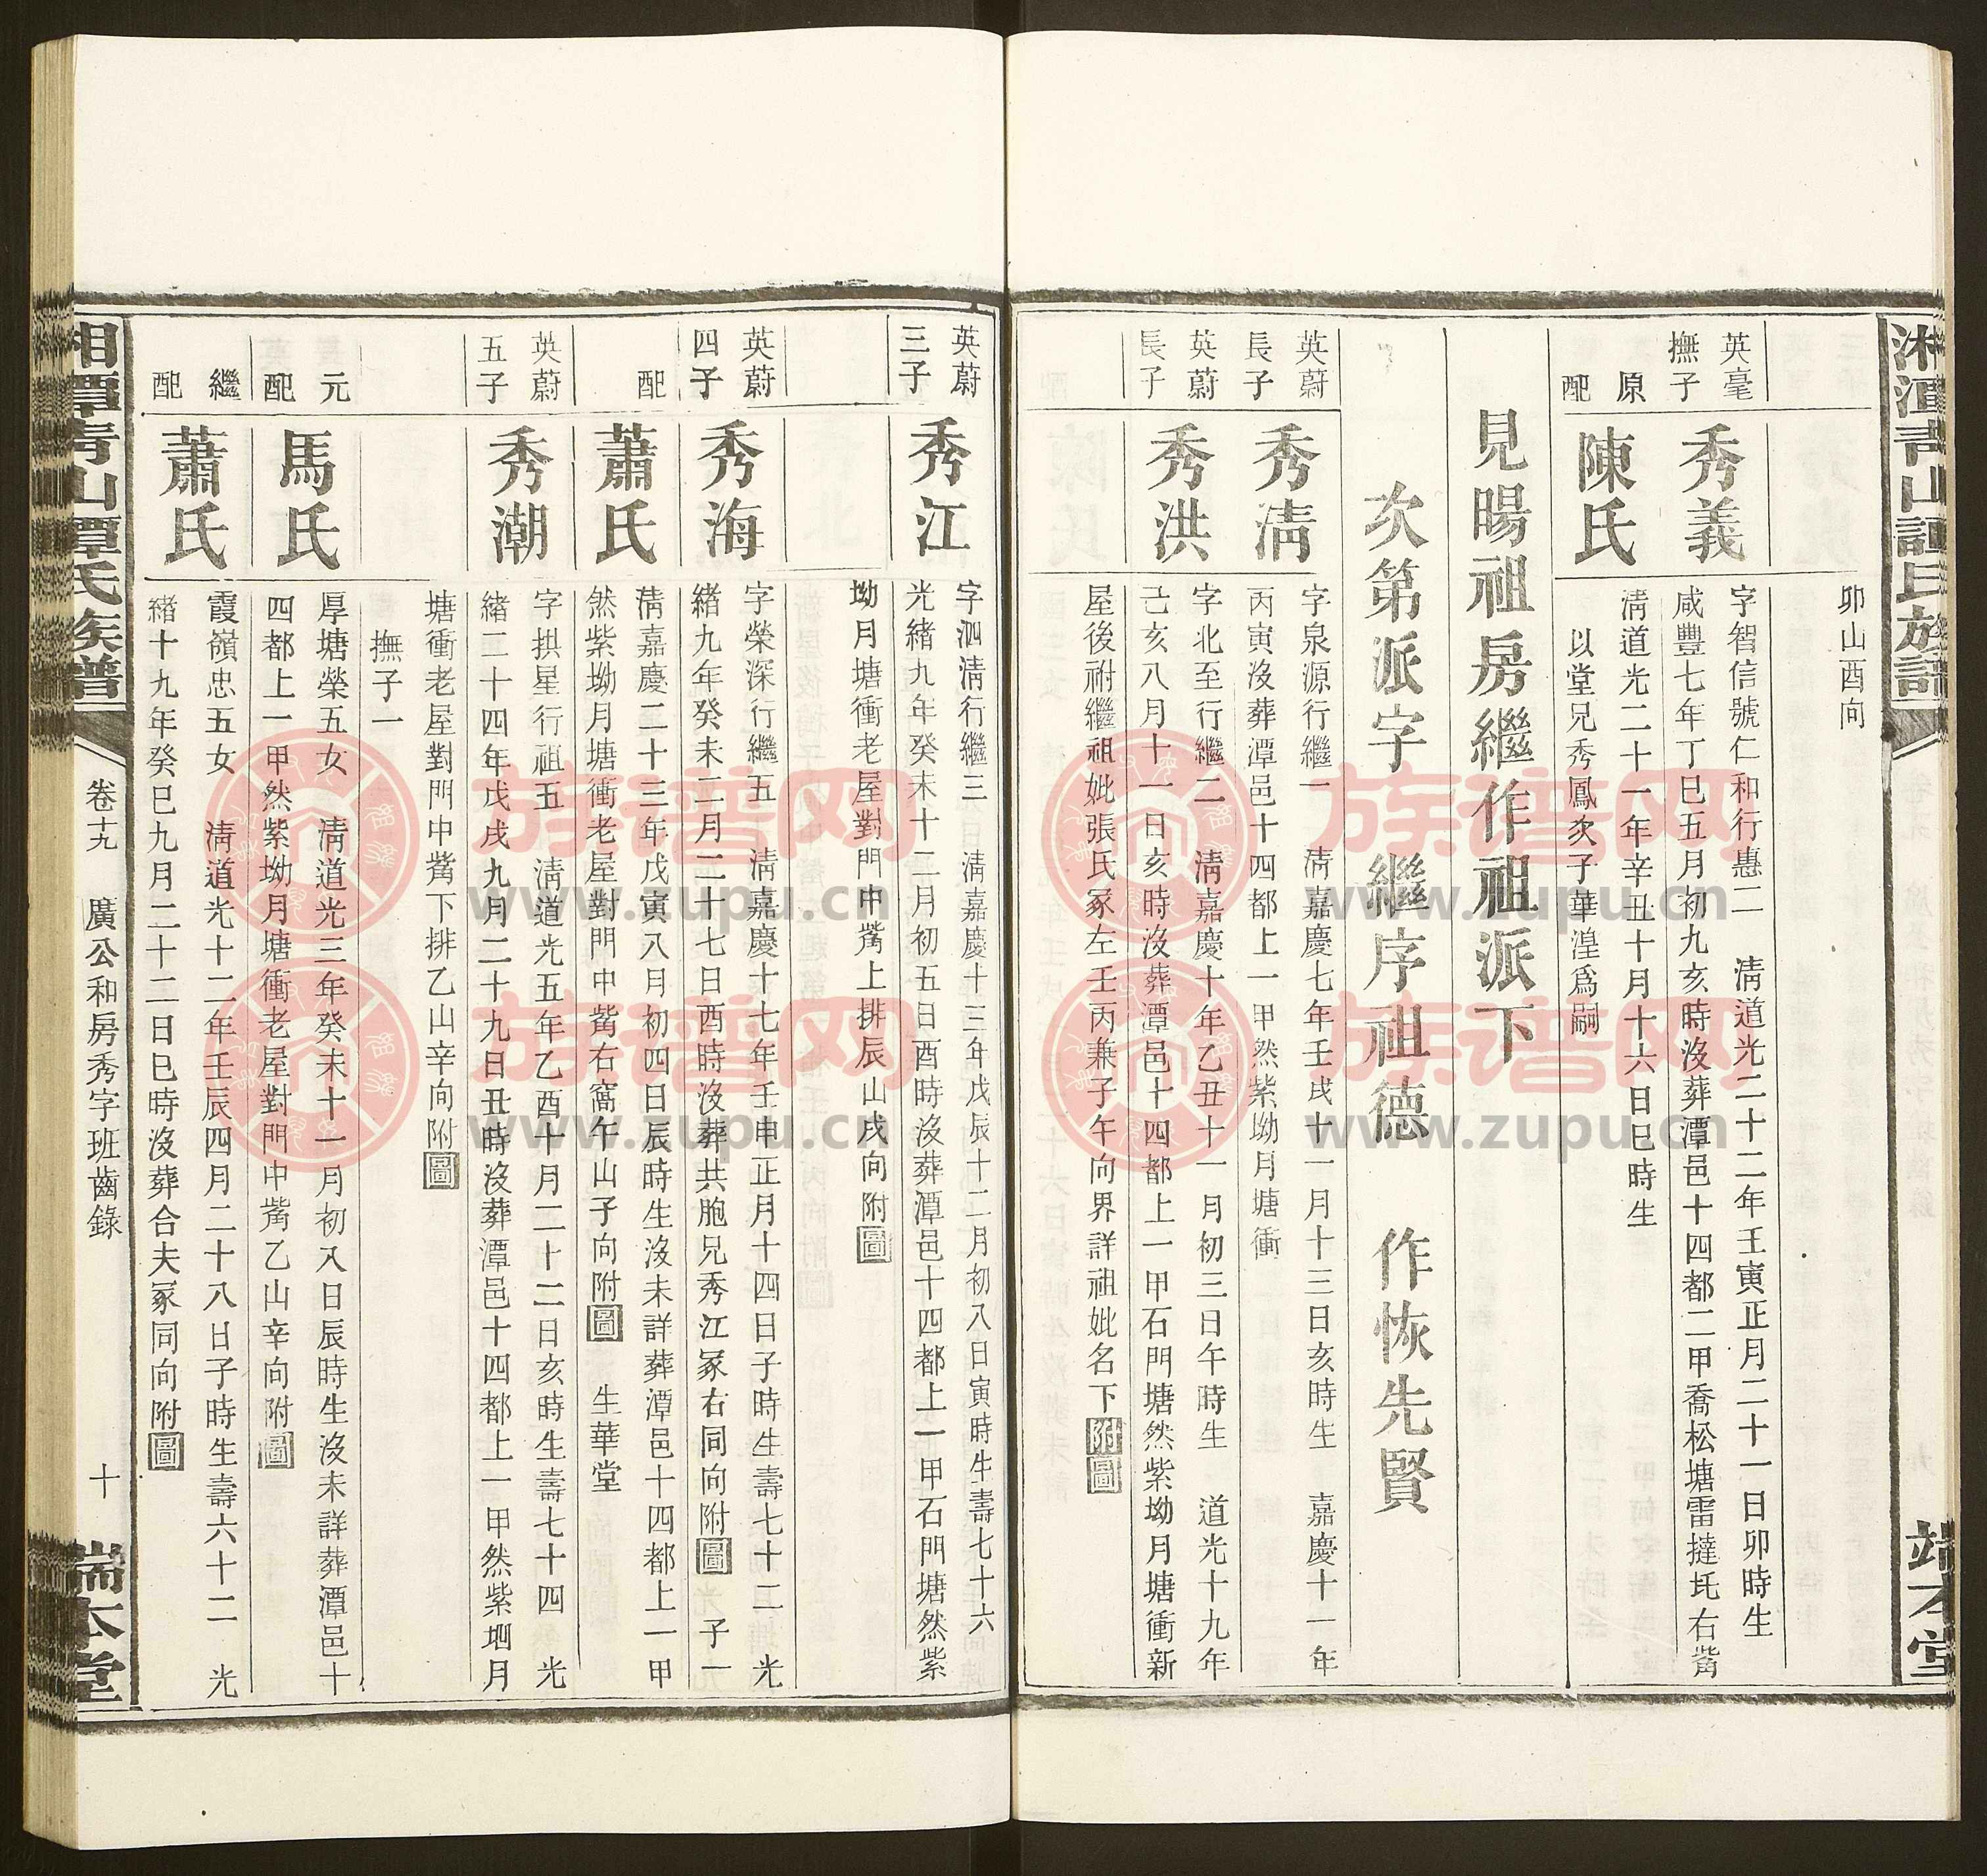 湘潭青山譚氏族譜
端本堂
卯山酉向
英毫
撫子
秀義
字智信號仁和行惠二　清道光二十二年壬寅正月二十一日卯時生
咸豐七年丁巳五月初九亥時沒葬潭邑十四都二甲喬松塘雷撻坵右嘴
原
配
陳氏
清道光二十一年辛丑十月十六日巳時生
以堂兄秀鳳次子華湟爲嗣
見暘祖房繼作祖派下
次第派字　繼序祖德　作恢先賢
英蔚
長子
秀清
字泉源行繼一　清嘉慶七年壬戌十一月十三日亥時生　嘉慶十一年
丙寅沒葬潭邑十四都上一甲然紫坳月塘衝
英蔚
長子
秀洪
字北至行繼二　清嘉慶十年乙丑十一月初三日午時生　道光十九年
己亥八月十一日亥時沒葬潭邑十四都上一甲石門塘然紫坳月塘衝新
屋後祔繼祖妣張氏冢左壬丙兼子午向界詳祖妣名下附圖
英蔚
三子
秀江
字泗淸行繼三　清嘉慶十三年戊辰十二月初八日寅時生壽七十六
光緒九年癸未十二月初五日酉時沒葬潭邑十四都上一甲石門塘然紫
坳月塘衝老屋對門中嘴上排辰山戌向附圖
英蔚
四子
秀海
字榮深行繼五　清嘉慶十七年壬申正月十四日子時生壽七十二　光
緒九年癸未二月二十七日酉時沒葬共胞兄秀江冢右同向附圖　子一
配
蕭氏
清嘉慶二十三年戊寅八月初四日辰時生沒未詳葬潭邑十四都上一甲
然紫坳月塘衝老屋對門中嘴右窩午山子向附圖　生華堂
英蔚
五子
秀潮
字拱星行祖五　清道光五年乙酉十月二十二日亥時生壽七十四　光
緒二十四年戊戌九月二十九日丑時沒葬潭邑十四都上一甲然紫坳月
塘衝老屋對門中嘴下排乙山辛向附圖
撫子一
元
配
馬氏
厚塘榮五女　清道光三年癸未十一月初八日辰時生沒未詳葬潭邑十
四都上一甲然紫坳月塘衝老屋對門中嘴乙山辛向附圖
繼
配
蕭氏
霞嶺忠五女　清道光十二年壬辰四月二十八日子時生壽六十二　光
緒十九年癸巳九月二十二日巳時沒葬合夫冢同向附圖
湘潭青山譚氏族譜
卷十九　廣公和房秀字班齒錄　十
端本堂
族谱网
www.zupu.cn
族谱网
www.zupu.cn
族谱网
www.zupu.cn
族谱网
www.zupu.cn